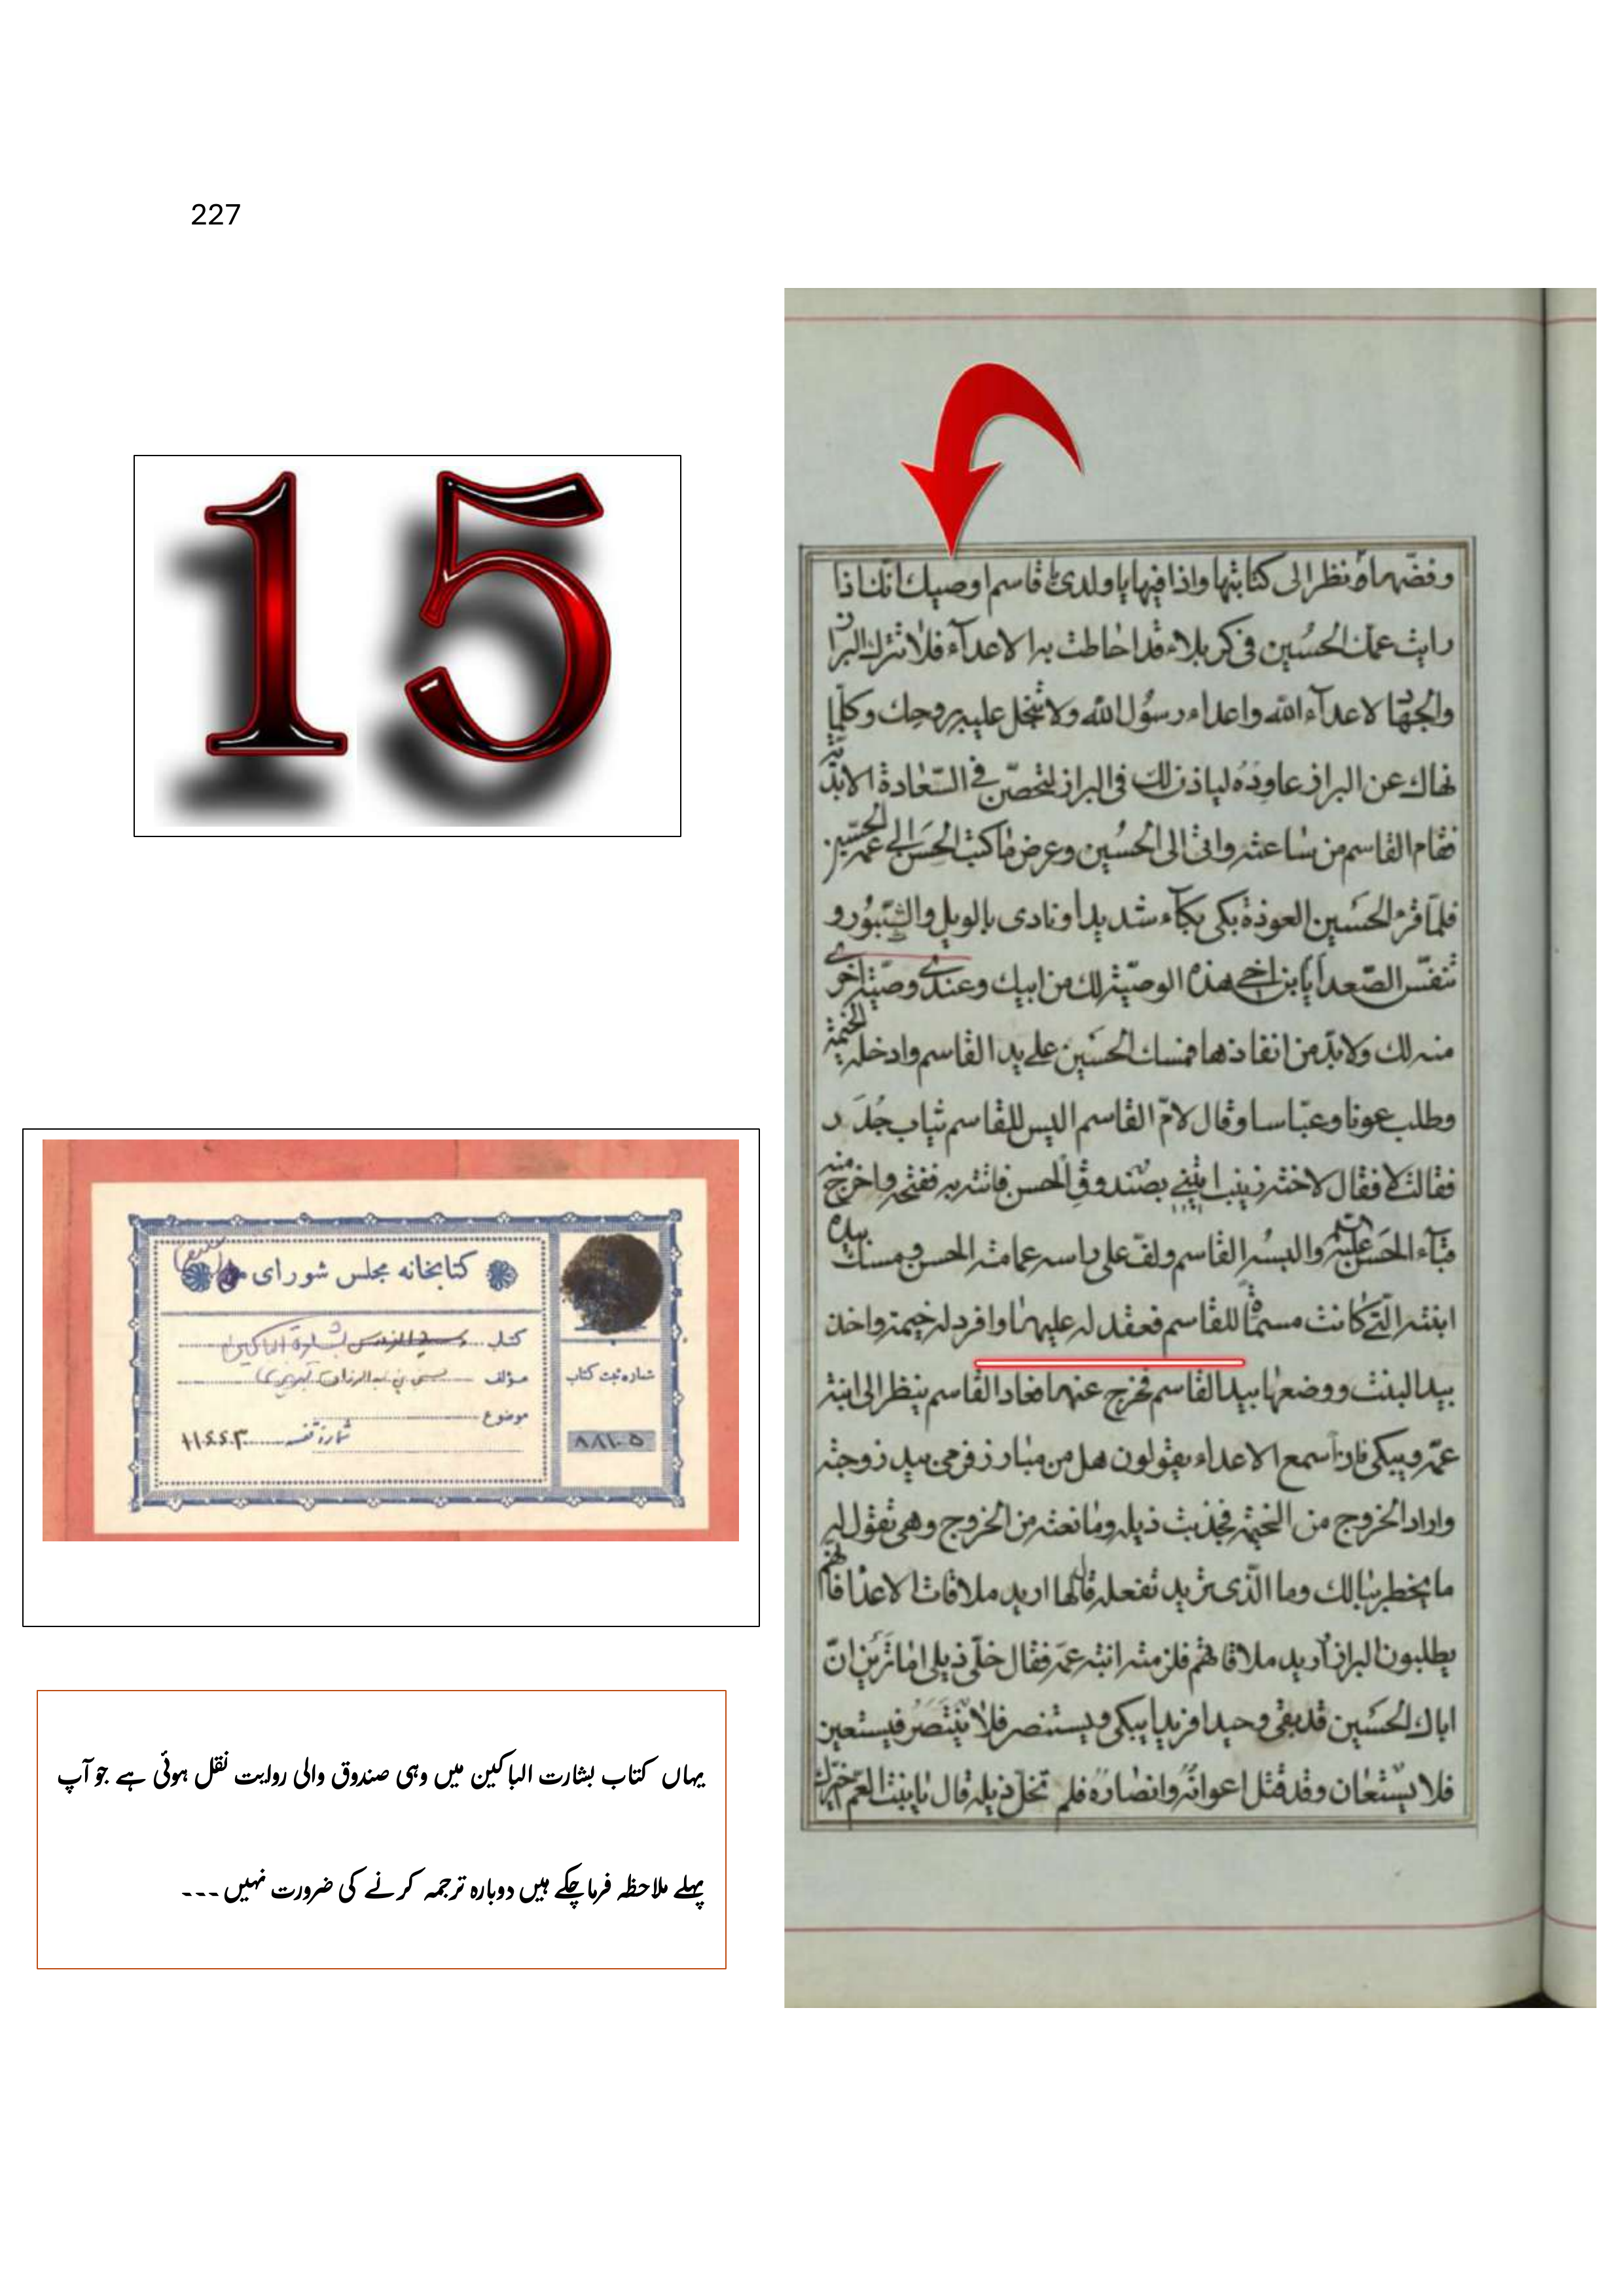 227
15
وفضّها ونظر الى كتابتها واذا فيها يا ولدى يا قاسم اوصيك انك اذا
رايت عمك الحسين فى كربلاء قد احاطت به الاعدآء فلا تترك البراز
والجهاد لاعدآء الله واعداء رسول الله ولا تبخل عليه بروحك وكلما
نهاك عن البراز عاوده لياذن لك فى البراز لتحصّن فى السّعادة الابديّة
فقام القاسم من ساعته واتى الى الحسين وعرض ما كتب الحسن الى عمه الحسين
فلمّا قرء الحسين العوذة بكى بكآء شديدا ونادى بالويل والثبور و
تنفّس الصّعدا يا بن اخى هذه الوصيّة لك من ابيك وعندى وصيّة اخرى
منه لك ولا بدّ من انفاذها فمسك الحسين على يد القاسم وادخله الخيمة
وطلب عونا وعبّاسا وقال لامّ القاسم اليس للقاسم ثياب جُدَد
فقالت لا فقال لاخته زينب ايتينى بصندوق الحسن فاتته به ففتحه واخرج منه
قبآء الحسن والبسه القاسم ولفّ على راسه عمامة الحسن ومسك بيده
ابنته الّتى كانت مسمّاة للقاسم فعقد له عليها وافرد له خيمة واخذ
بيد البنت ووضعها بيد القاسم فخرج عنهما فعاد القاسم ينظر الى ابنة
عمّه ويبكى فاذا سمع الاعداء يقولون هل من مبارز فرمى بيد زوجته
واراد الخروج من الخيمة فجذبت ذيله ومانعته من الخروج وهى تقول له
ما يخطر ببالك وما الّذى تريد تفعله قال لها اريد ملاقات الاعدا فانّهم
يطلبون البراز اريد ملاقاتهم فلزمته ابنة عمّه فقال خلّى ذيلى اما ترين انّ
اباك الحسين قد بقى وحيدا فريدا يبكى ويستنصر فلا ينتصر فيستعين
فلا يستعان وقد قتل اعوانه وانصاره فلم تخل ذيله قال يا بنت العم
كتابخانه مجلس شورای
کتاب بشارة الباكين
مؤلف
موضوع
شماره ثبت کتاب
۸۸۱۰۵
یہاں کتاب بشارت الباکین میں وہی صندوق والی روایت نقل ہوئی ہے جو آپ
پہلے ملاحظہ فرما چکے ہیں دوبارہ ترجمہ کرنے کی ضرورت نہیں ---